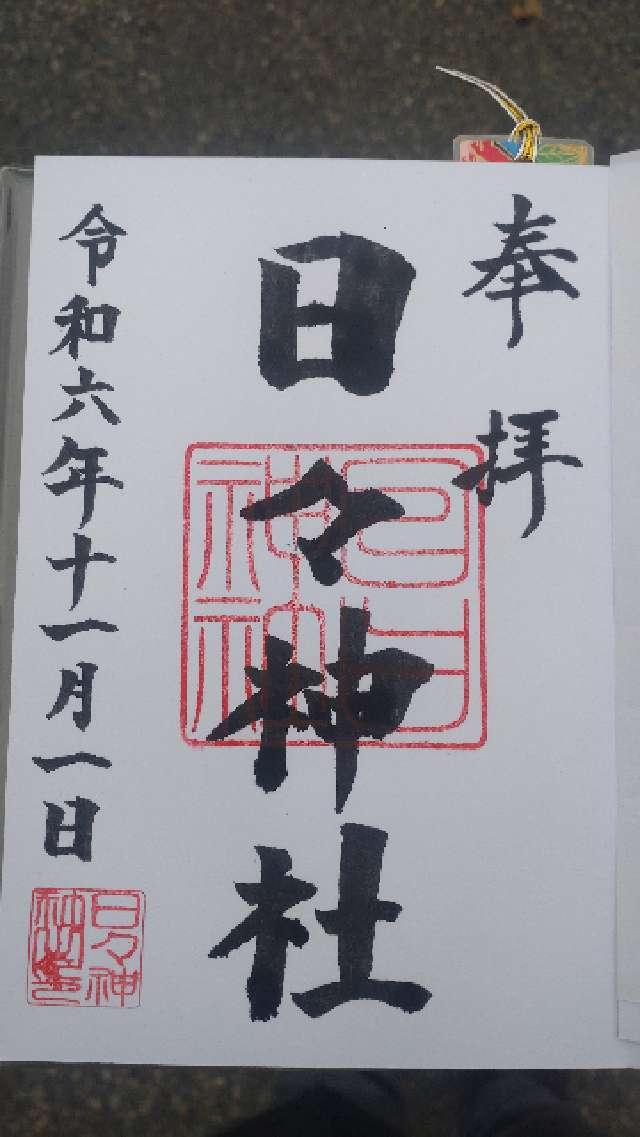 奉拝
日々神社
令和六年十一月一日
日々神
社之印